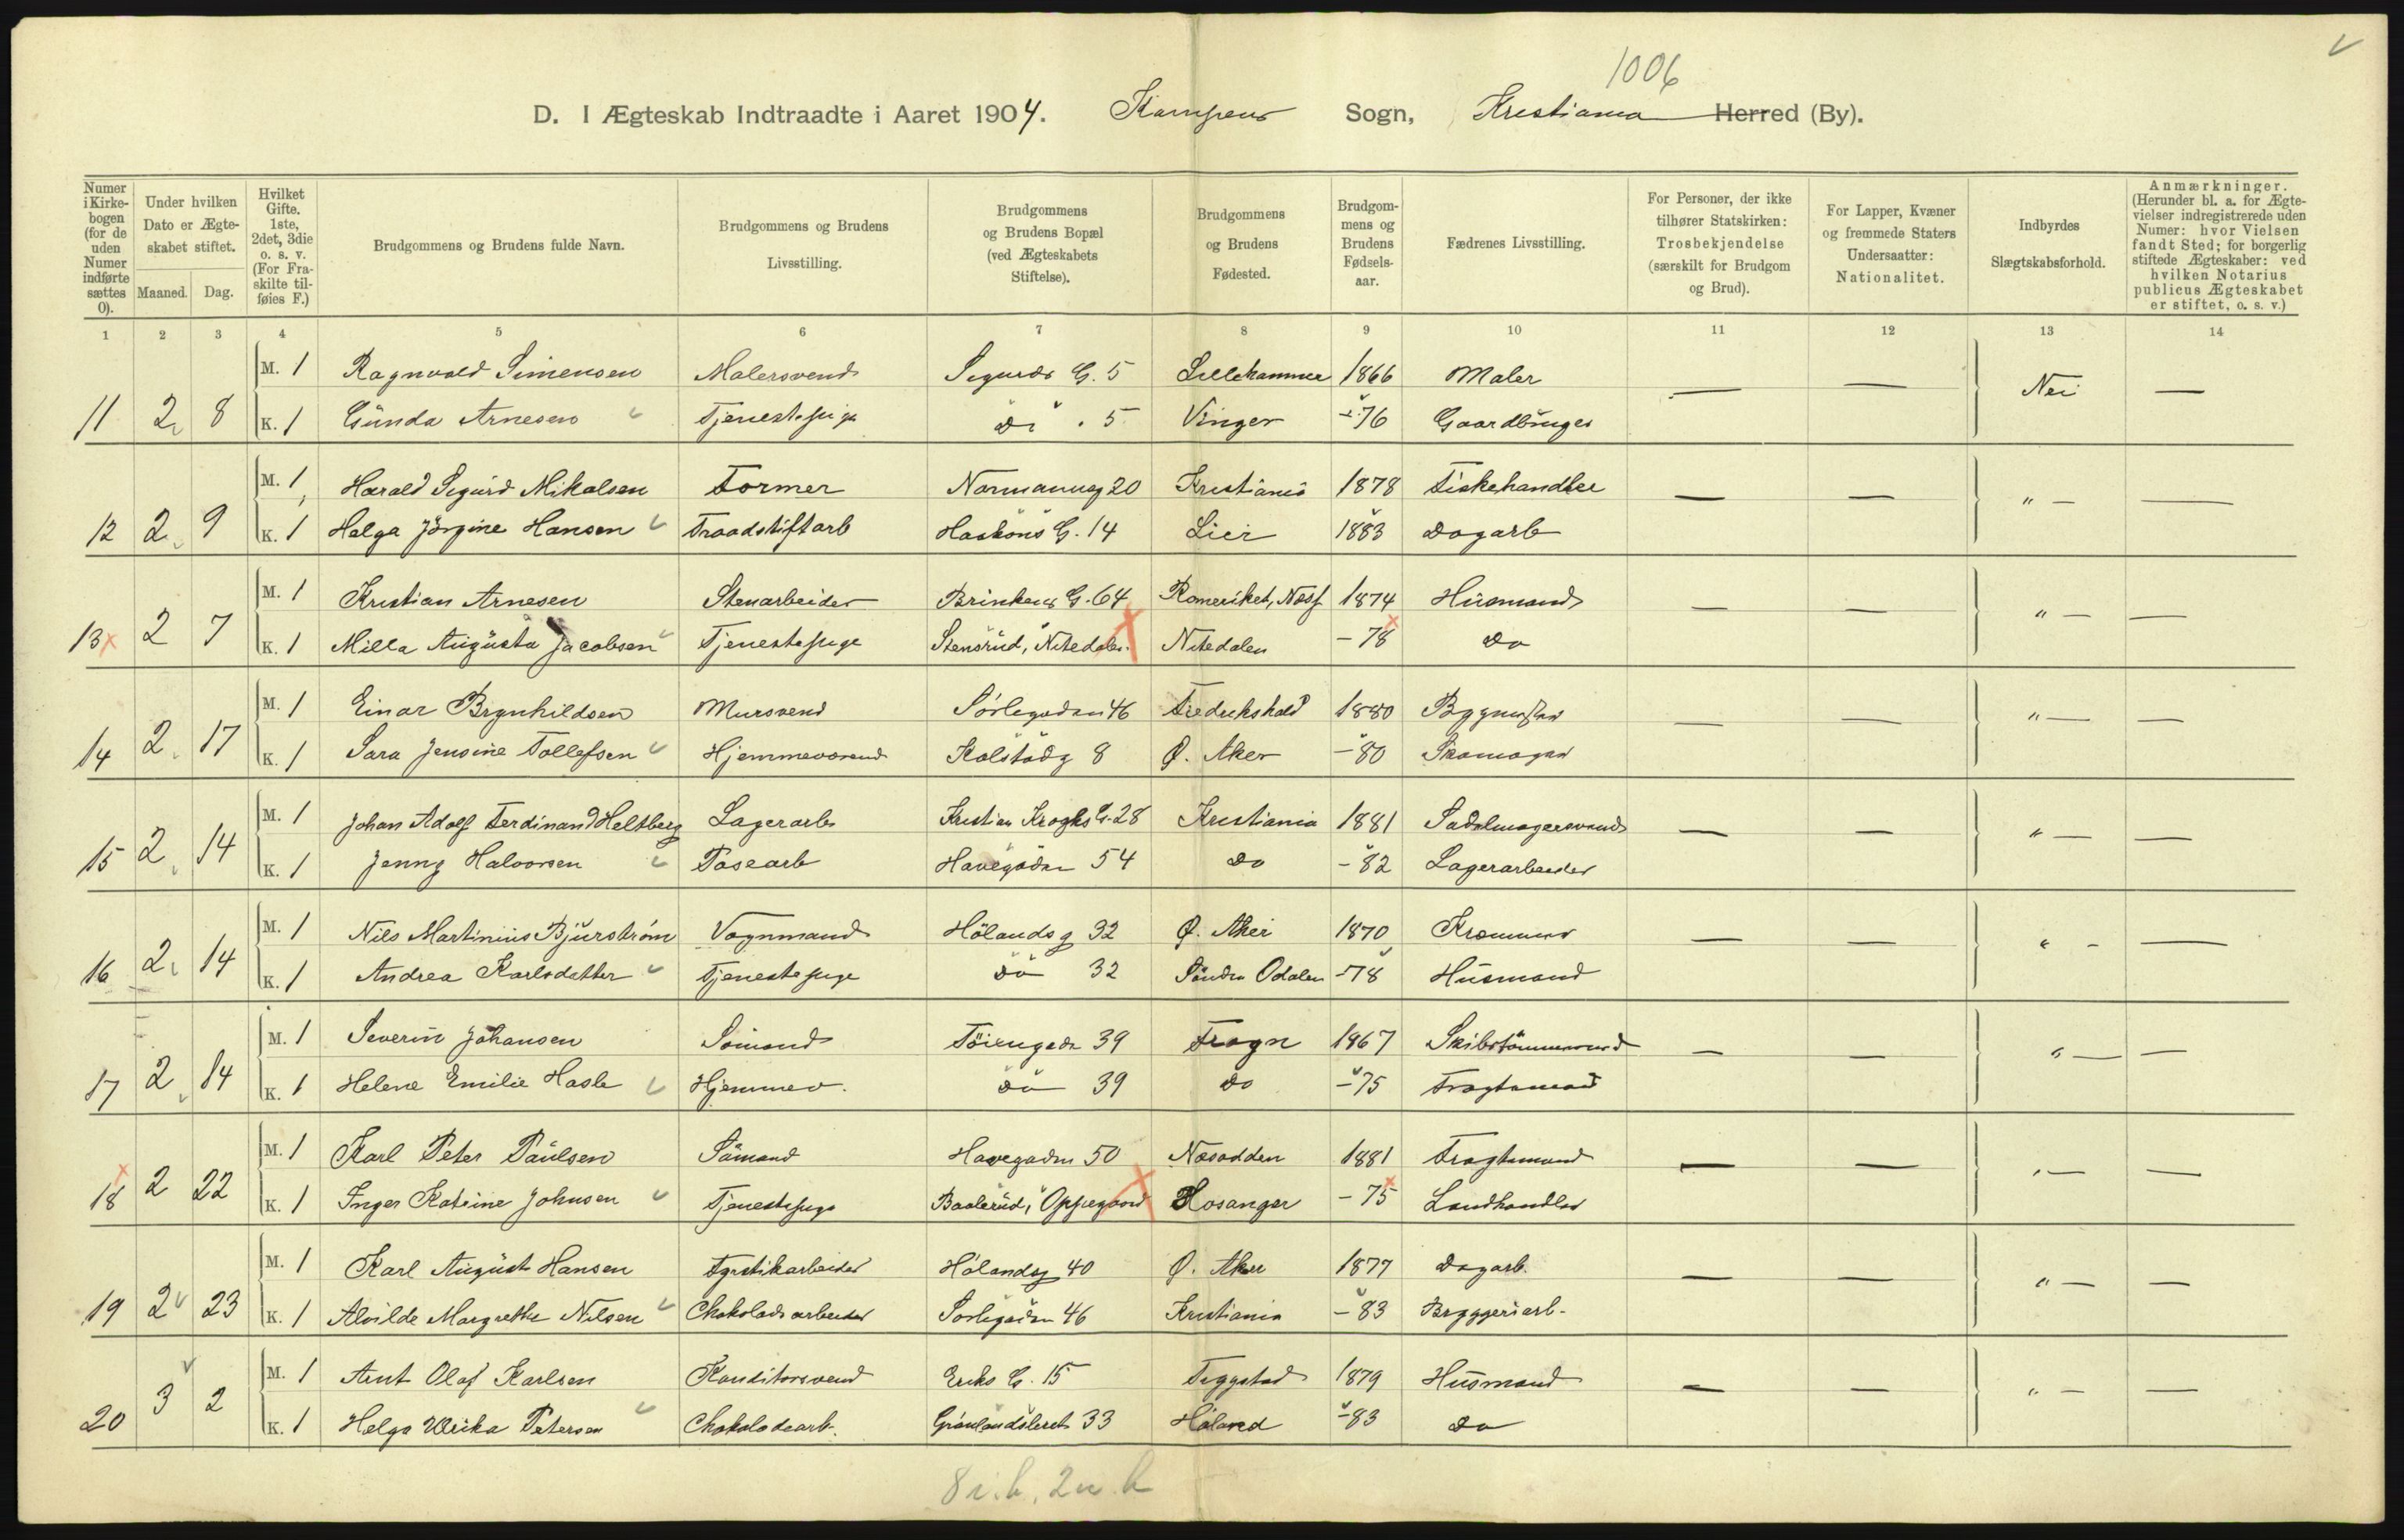 1006
D. I Ægteskab Indtraadte i Aaret 1904. Kampens Sogn, Kristiania Herred (By).
Numer i Kirke-bogen (for de uden Numer indførte sættes 0). | Under hvilken Dato er Ægte-skabet stiftet. Maaned. Dag. | Hvilket Gifte. 1ste, 2det, 3die o. s. v. (For Fra-skilte til-føies F.) | Brudgommens og Brudens fulde Navn. | Brudgommens og Brudens Livsstilling. | Brudgommens og Brudens Bopæl (ved Ægteskabets Stiftelse). | Brudgommens og Brudens Fødested. | Brudgom-mens og Brudens Fødsels-aar. | Fædrenes Livsstilling. | For Personer, der ikke tilhører Statskirken: Trosbekjendelse (særskilt for Brudgom og Brud). | For Lapper, Kvæner og fremmede Staters Undersaatter: Nationalitet. | Indbyrdes Slægtskabsforhold. | Anmærkninger. (Herunder bl. a. for Ægte-vielser indregistrerede uden Numer: hvor Vielsen fandt Sted; for borgerlig stiftede Ægteskaber: ved hvilken Notarius publicus Ægteskabet er stiftet, o. s. v.)
1 2 3 4 5 6 7 8 9 10 11 12 13 14
M. 1 Ragnvald Simensen Malersvend Sigurds G. 5 Lillehammer 1866 Maler — — Nei —
11 2 8 K. 1 Gunda Arnesen Tjenestepige Do . 5 Vinger - 76 Gaardbruger
M. 1 Harald Sigurd Mikalsen Former Normannsg 20 Kristiania 1878 Fiskehandler — — " — —
12 2 9 K. 1 Helga Jörgine Hansen Traadstiftarb Haakons G. 14 Lier 1883 Dagarb
M. 1 Kristian Arnesen Stenarbeider Brinkens G. 64 Romeriket, Næs 1874 Husmand — — " — —
13 2 7 K. 1 Milla Augusta Jacobsen Tjenestepige Stensrud, Nitedalen Nitedalen - 78 Do
M. 1 Einar Brynhildsen Mursvend Sörlegaden 46 Fredrikshald 1880 — — " — —
14 2 17 K. 1 Sara Jensine Tollefsen Hjemmeværend Kolstadg 8 Ø. Aker - 80 Skomager
M. 1 Johan Adolf Ferdinand Heltberg Lagerarb Kristian Kroghs G. 28 Kristiania 1881 Sadelmagersvend — — " — —
15 2 14 K. 1 Jenny Halvorsen Posearb Havegaden 54 Do - 82 Lagerarbeider
M. 1 Nils Martinius Bjurström Vognmand Hölandsg 32 Ø. Aker 1870 — — " - —
16 2 14 K. 1 Andrea Karlsdatter Tjenestepige Do 32 Söndre Odalen - 78 Husmand
M. 1 Severin Johansen Sömand Töiengaden 39 Frogn 1867 Skibstömmermand — — " — —
17 2 14 K. 1 Helene Emilie Hasle Hjemmev. Do 39 Do - 75 Fragtemand
M. 1 Karl Peter Paulsen Sömand Havegaden 50 Næsodden 1881 Fragtemand — — " — —
18 2 22 K. 1 Inger Katrine Johnsen Tjenestepige Baalerud, Oppegaard Hosanger - 75 Landhandler
M. 1 Karl August Hansen Fyrstikarbeider Hölandsg 40 Ø. Aker 1877 Dagarb. — — " — —
19 2 23 K. 1 Alvilde Margrethe Nilsen Chokoladearbeider Sörlegaden 46 Kristiania - 83 Bryggeriarb.
M. 1 Arnt Olaf Karlsen Konditorsvend Eriks G. 15 Trygstad 1879 Husmand — — " — —
20 3 2 K. 1 Helga Ulrika Petersen Chokoladearb. Grönlandsleret 33 Höland - 83 Do
8 i.b. 2 u.b